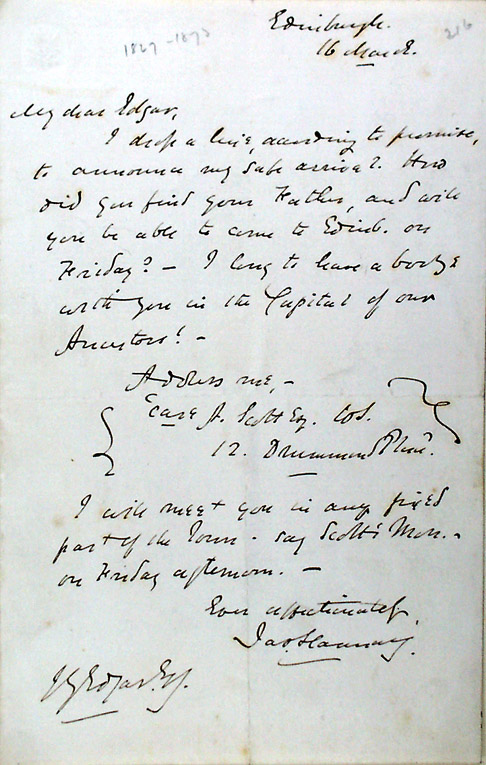 Edinburgh.
216
1827-1873
16 March.
My dear Edgar,
I drop a line, according to promise,
to announce my safe arrival. How
did you find your Father, and will
you be able to come to Edinb. on
Friday? - I long to have a
with you in the Capital of our
Ancestors! -
Address me, -
care A. Scott Esq. W.S.
12. Drummond Place.
I will meet you in any fixed
part of the Town - say Scott's Mon. -
on Friday afternoon. -
Ever affectionately,
Jas Hannay.
J G Edgar Esq.